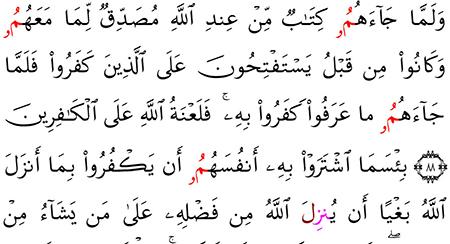 وَلَمَّا جَآءَهُمُۥ كِتَٰبٌ مِّنْ عِندِ اللَّهِ مُصَدِّقٌ لِّمَا مَعَهُمُۥ
وَكَانُوا۟ مِن قَبْلُ يَسْتَفْتِحُونَ عَلَى الَّذِينَ كَفَرُوا۟ فَلَمَّا
جَآءَهُمُۥ ما عَرَفُوا۟ كَفَرُوا۟ بِهِۦ ۚ فَلَعْنَةُ اللَّهِ عَلَى الْكَٰفِرِينَ
۝٨٨ بِئْسَمَا اشْتَرَوْا۟ بِهِۦٓ أَنفُسَهُمُۥ أَن يَكْفُرُوا۟ بِمَا أَنزَلَ
اللَّهُ بَغْيًا أَن يُنزِلَ اللَّهُ مِن فَضْلِهِۦ عَلَىٰ مَن يَشَآءُ مِنْ